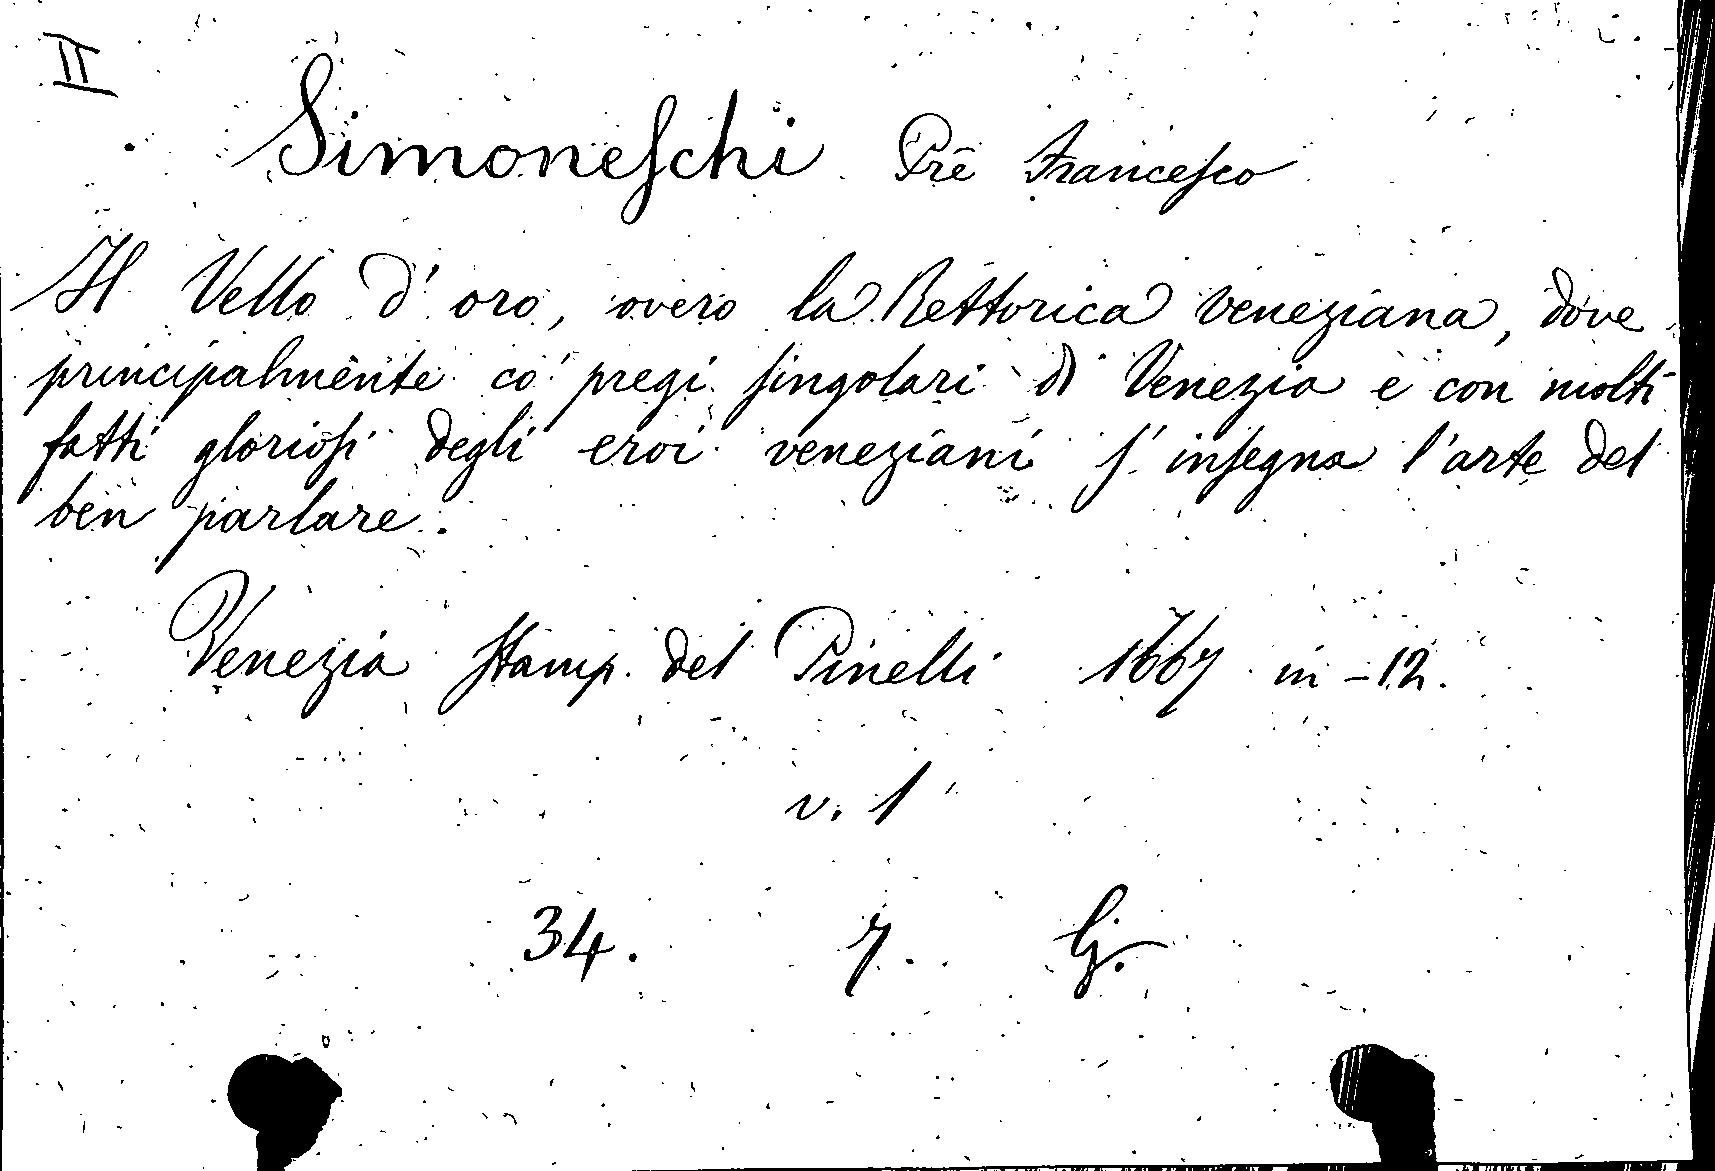 II
Simoneschi Prê Francesco
Il Vello d'oro, overo la Rettorica veneziana, dove
principalmente co' pregi singolari di Venezia e con molti
fatti gloriosi degli eroi veneziani s'insegna l'arte del
ben parlare.
Venezia Stamp. del Pinelli 1667 in-12.
v. 1
34. 7. G.